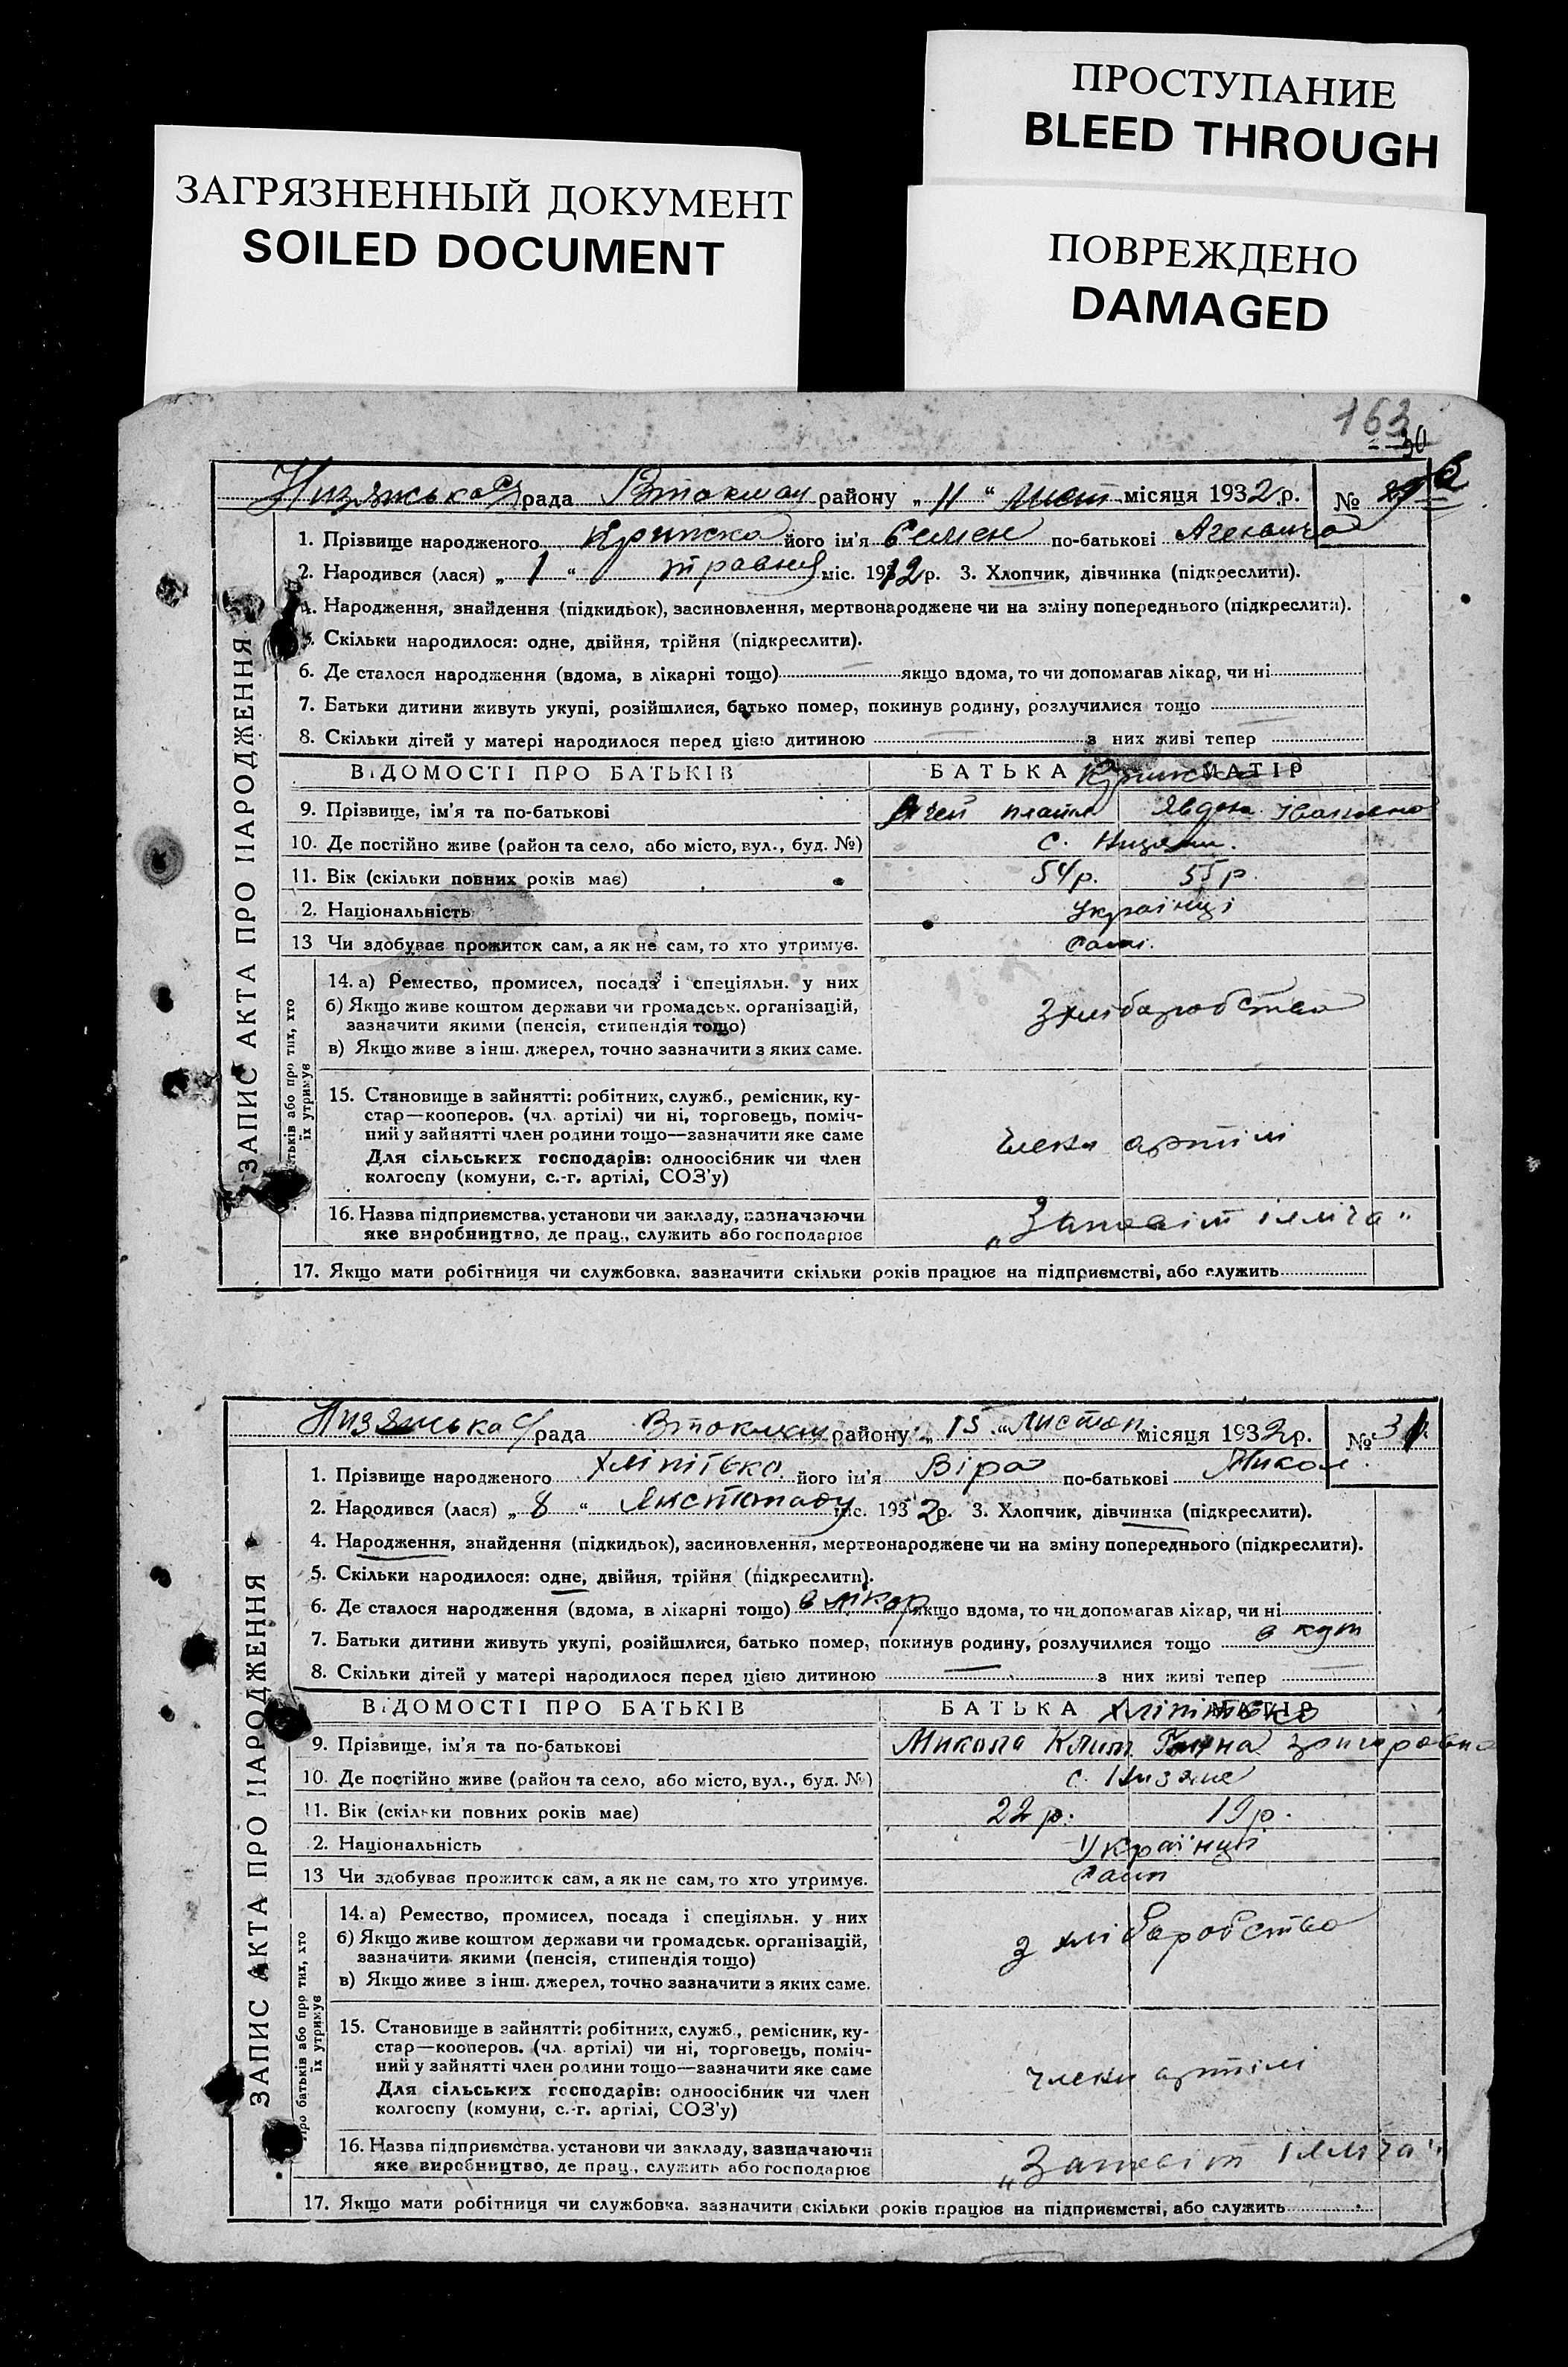 ПРОСТУПАНИЕ
BLEED THROUGH
ЗАГРЯЗНЕННЫЙ ДОКУМЕНТ
SOILED DOCUMENT
ПОВРЕЖДЕНО
DAMAGED
163
30
рада Втокмац району „ 11 “ лист місяця 1932 р. №
1. Прізвище народженого його ім'я Семен по-батькові
2. Народився (лася) „ 1 “ травня міс. 1912 р. 3. Хлопчик, дівчинка (підкреслити).
4. Народження, знайдення (підкидьок), засиновлення, мертвонароджене чи на зміну попереднього (підкреслити).
5. Скільки народилося: одне, двійня, трійня (підкреслити).
6. Де сталося народження (вдома, в лікарні тощо) — якщо вдома, то чи допомагав лікар, чи ні
7. Батьки дитини живуть укупі, розійшлися, батько помер, покинув родину, розлучилися тощо —
8. Скільки дітей у матері народилося перед цією дитиною — з них живі тепер —
ВІДОМОСТІ ПРО БАТЬКІВ БАТЬКА МАТІР
9. Прізвище, ім'я та по-батькові Явдоха Івановна
10. Де постійно живе (район та село, або місто, вул., буд. №) с. Низяни.
11. Вік (скільки повних років має) 54 р. 55 р.
2. Національність Українці
13 Чи здобуває прожиток сам, а як не сам, то хто утримує. сами.
14. а) Ремество, промисел, посада і спеціяльн. у них
б) Якщо живе коштом держави чи громадськ. організацій,
зазначити якими (пенсія, стипендія тощо)
з хліборобства
в) Якщо живе з інш. джерел, точно зазначити з яких саме.
15. Становище в зайнятті: робітник, служб., ремісник, ку-
стар—кооперов. (чл. артілі) чи ні, торговець, поміч-
ний у зайнятті член родини тощо—зазначити яке саме
члени артілі
Для сільських господарів: одноосібник чи член
колгоспу (комуни, с.-г. артілі, СОЗ'у)
16. Назва підприємства, установи чи закладу, зазначаючи
яке виробництво, де прац., служить або господарює
„Заповіт Ілліча“
17. Якщо мати робітниця чи службовка, зазначити скільки років працює на підприємстві, або служить
ЗАПИС АКТА ПРО НАРОДЖЕННЯ
тьків або про тих, хто
їх утримує
Низянська с/рада Втокмац району „ 15 “ Листоп місяця 1932 р. № 31
1. Прізвище народженого його ім'я Віра по-батькові Микол.
2. Народився (лася) „ 8 “ Листопаду міс. 1932 р. 3. Хлопчик, дівчинка (підкреслити).
4. Народження, знайдення (підкидьок), засиновлення, мертвонароджене чи на зміну попереднього (підкреслити).
5. Скільки народилося: одне, двійня, трійня (підкреслити).
6. Де сталося народження (вдома, в лікарні тощо) в лікар якщо вдома, то чи допомагав лікар, чи ні
7. Батьки дитини живуть укупі, розійшлися, батько помер, покинув родину, розлучилися тощо
8. Скільки дітей у матері народилося перед цією дитиною — з них живі тепер —
ВІДОМОСТІ ПРО БАТЬКІВ БАТЬКА МАТІР
9. Прізвище, ім'я та по-батькові Микола Клим Григоровна
10. Де постійно живе (район та село, або місто, вул., буд. №) с. Низяне
11. Вік (скільки повних років має) 22 р. 19 р.
2. Національність Українці
13 Чи здобуває прожиток сам, а як не сам, то хто утримує. сами
14. а) Ремество, промисел, посада і спеціяльн. у них
б) Якщо живе коштом держави чи громадськ. організацій,
зазначити якими (пенсія, стипендія тощо)
з хліборобства
в) Якщо живе з інш. джерел, точно зазначити з яких саме.
15. Становище в зайнятті: робітник, служб., ремісник, ку-
стар—кооперов. (чл. артілі) чи ні, торговець, поміч-
ний у зайнятті член родини тощо—зазначити яке саме
члени артілі
Для сільських господарів: одноосібник чи член
колгоспу (комуни, с.-г. артілі, СОЗ'у)
16. Назва підприємства, установи чи закладу, зазначаючи
яке виробництво, де прац., служить або господарює
„Заповіт Ілліча“
17. Якщо мати робітниця чи службовка, зазначити скільки років працює на підприємстві, або служить
ЗАПИС АКТА ПРО НАРОДЖЕННЯ
Про батьків або про тих, хто
їх утримує